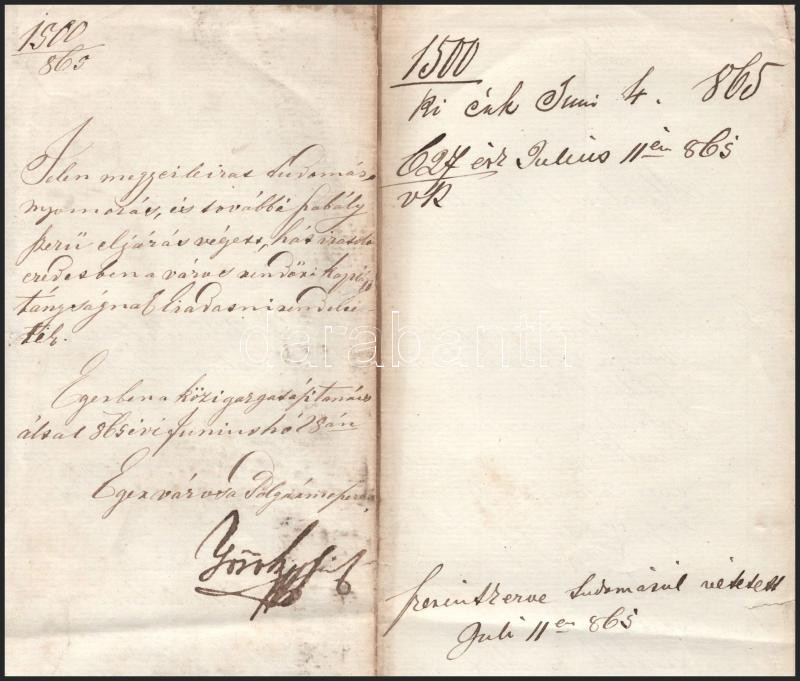 1500
865
Jelen megyei leirat tudomás,
nyomozás, és további szabály
szerű eljárás végett, hát iratila
eredetben a városi rendőri kapi
tányságnak kiadatni rendelte-
tik.
Egerben a közigazgatási tanács
által 865 évi Junius hó 28án
Eger városa Polgármestere
1500
Ki Juni 4. 865
627 érk Julius 11én 865
VR
tudomásul vétetett
Juli 11én 865
darabanth